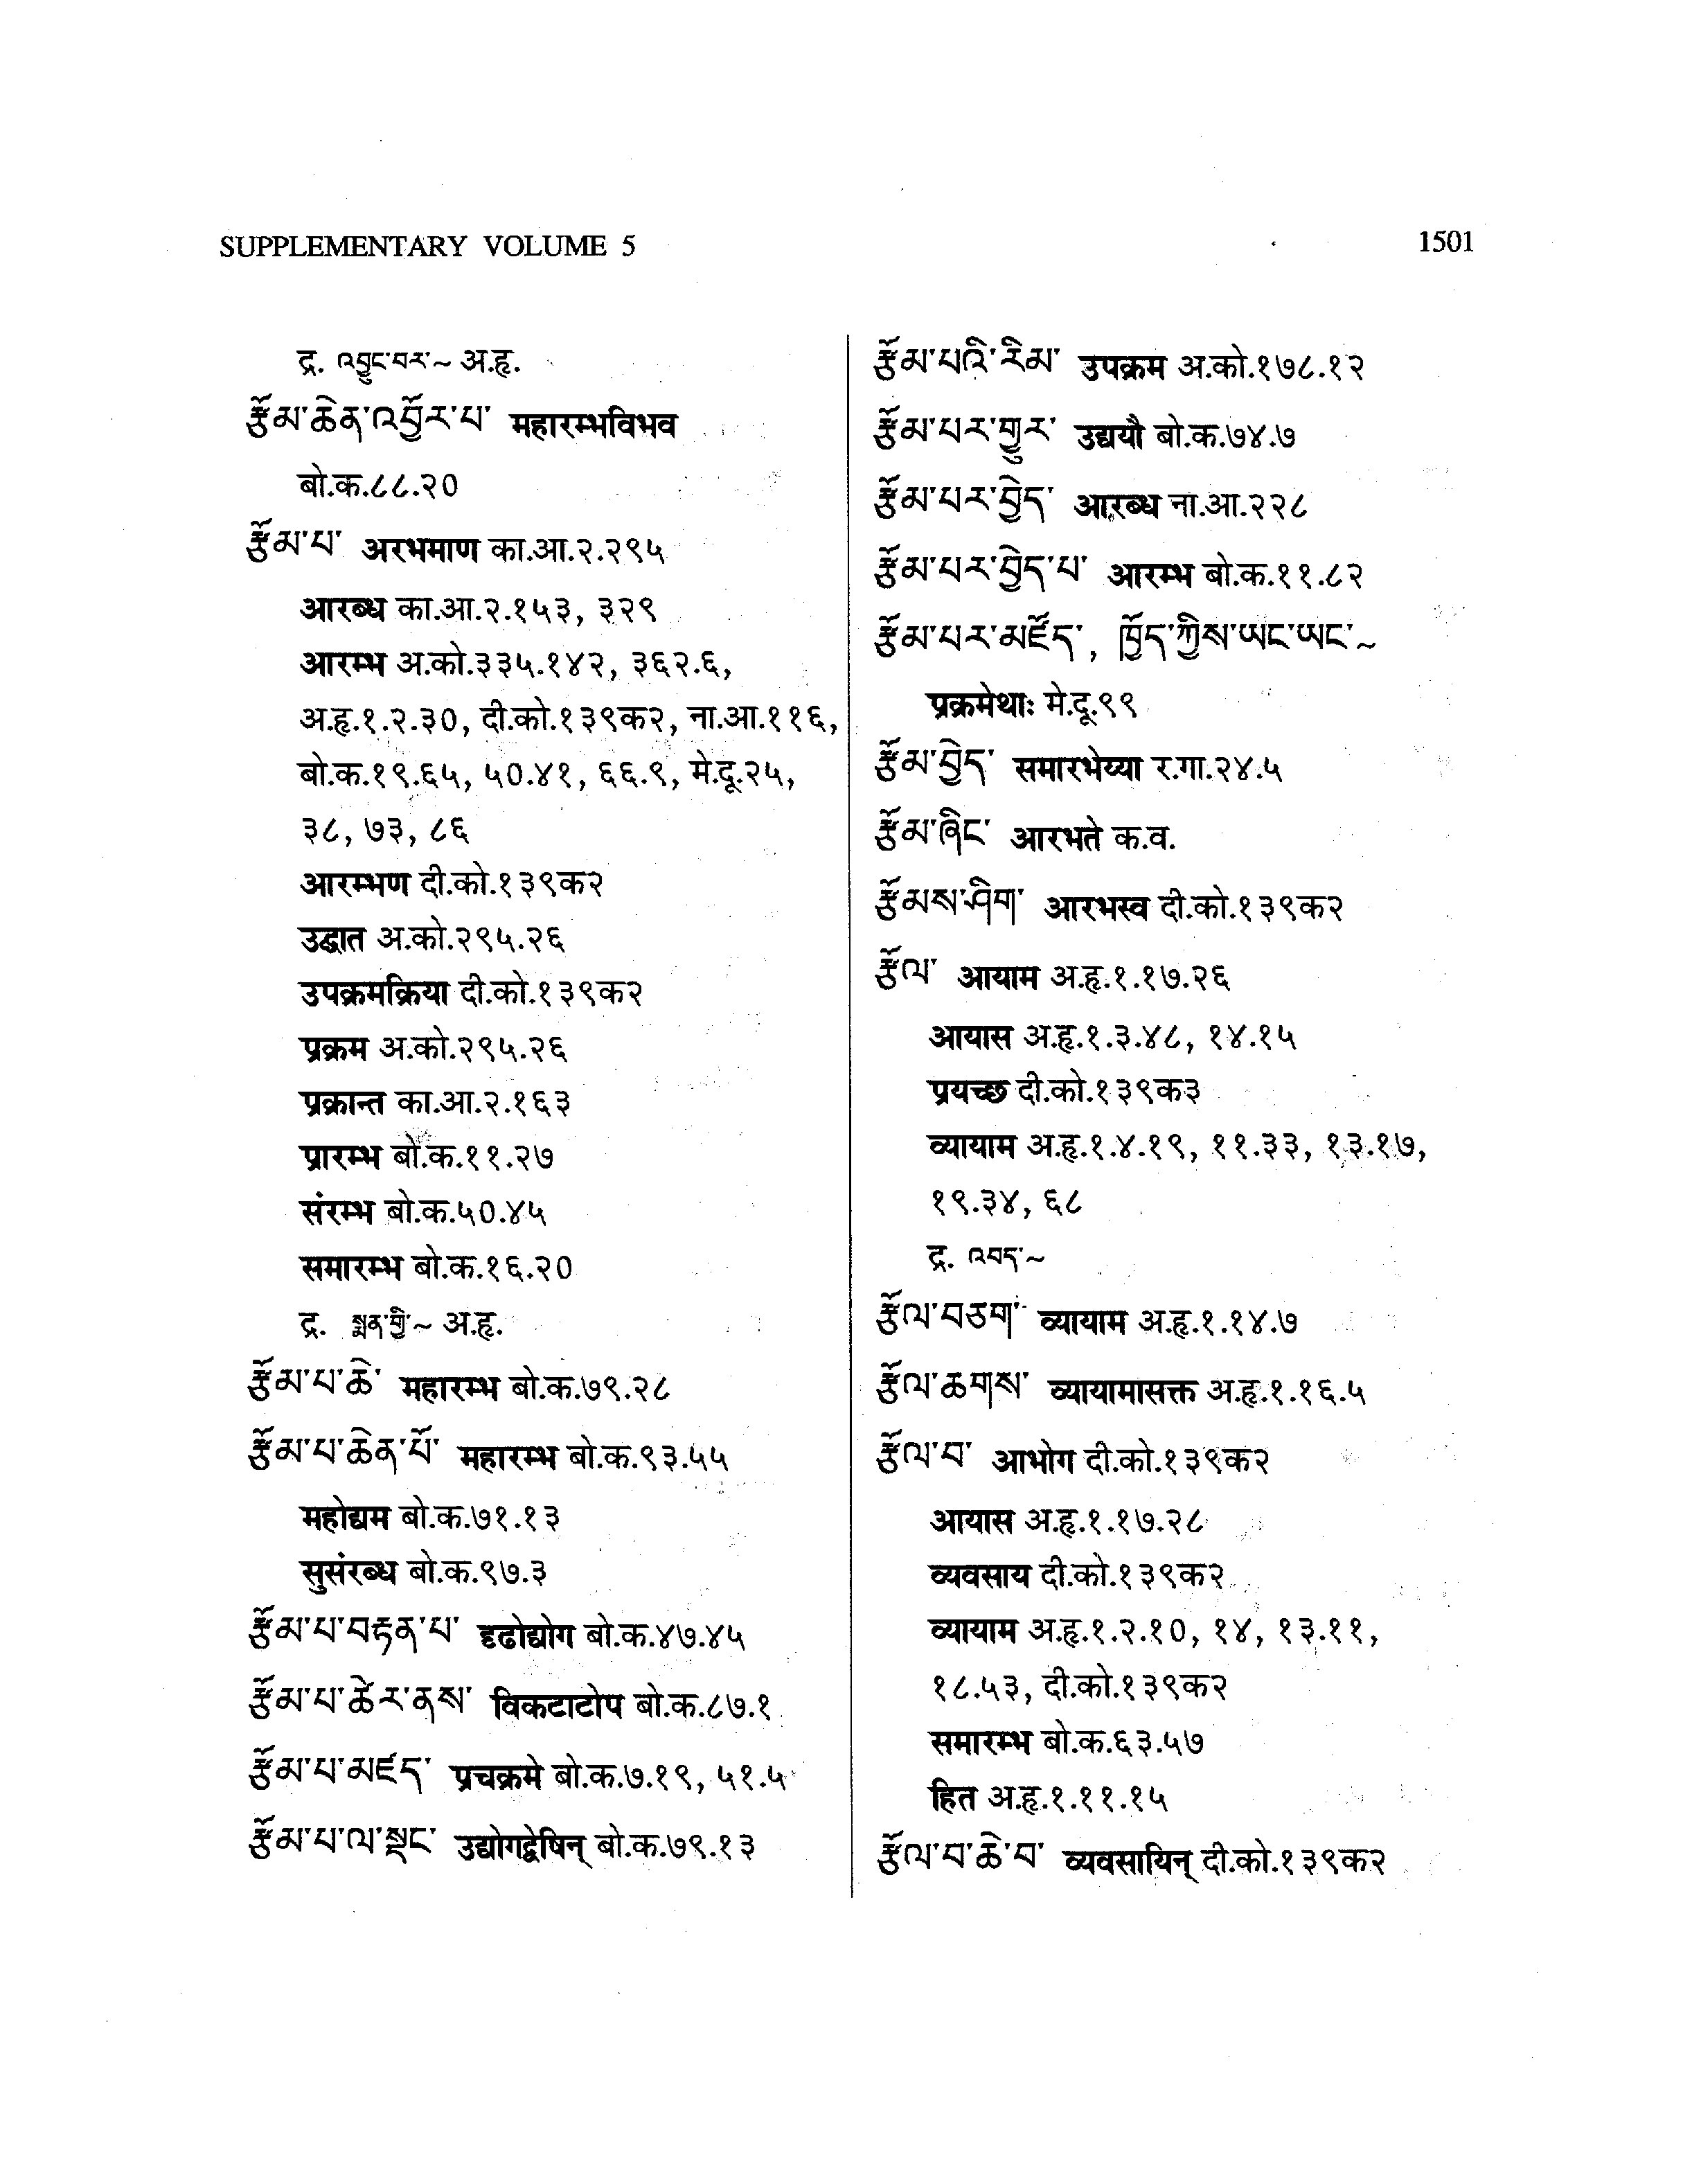 SUPPLEMENTARY VOLUME 5
1501
द्र. འབྱུང་བར་~ अ.हृ.
རྩོམ་ཆེན་འབྱོར་པ་ महारम्भविभव
बो.क.८८.२०
རྩོམ་པ་ अरभमाण का.आ.२.२९५
आरब्ध का.आ.२.१५३, ३२९
आरम्भ अ.को.३३५.१४२, ३६२.६,
अ.हृ.१.२.३०, दी.को.१३९क२, ना.आ.११६,
बो.क.१९.६५, ५०.४१, ६६.९, मे.दू.२५,
३८, ७३, ८६
आरम्भण दी.को.१३९क२
उद्घात अ.को.२९५.२६
उपक्रमक्रिया दी.को.१३९क२
प्रक्रम अ.को.२९५.२६
प्रक्रान्त का.आ.२.१६३
प्रारम्भ बो.क.११.२७
संरम्भ बो.क.५०.४५
समारम्भ बो.क.१६.२०
द्र. སྨན་གྱི་~ अ.हृ.
རྩོམ་པ་ཆེ་ महारम्भ बो.क.७९.२८
རྩོམ་པ་ཆེན་པོ་ महारम्भ बो.क.९३.५५
महोद्यम बो.क.७१.१३
सुसंरब्ध बो.क.९७.३
རྩོམ་པ་བརྟན་པ་ दृढोद्योग बो.क.४७.४५
རྩོམ་པ་ཆེར་ནས་ विकटाटोप बो.क.८७.१
རྩོམ་པ་མཛད་ प्रचक्रमे बो.क.७.१९, ५१.५
རྩོམ་པ་ལ་སྡང་ उद्योगद्वेषिन् बो.क.७९.१३
རྩོམ་པའི་རིམ་ उपक्रम अ.को.१७८.१२
རྩོམ་པར་གྱུར་ उद्ययौ बो.क.७४.७
རྩོམ་པར་བྱེད་ आरब्ध ना.आ.२२८
རྩོམ་པར་བྱེད་པ་ आरम्भ बो.क.११.८२
རྩོམ་པར་མཛོད་, ཁྱོད་ཀྱིས་ཡང་ཡང་~
प्रक्रमेथाः मे.दू.९९
རྩོམ་བྱེད་ समारभेय्या र.गा.२४.५
རྩོམ་ཞིང་ आरभते क.व.
རྩོམས་ཤིག་ आरभस्व दी.को.१३९क२
རྩོལ་ आयाम अ.हृ.१.१७.२६
आयास अ.हृ.१.३.४८, १४.१५
प्रयच्छ दी.को.१३९क३
व्यायाम अ.हृ.१.४.१९, ११.३३, १३.१७,
१९.३४, ६८
द्र. འབད་~
རྩོལ་བཅག་ व्यायाम अ.हृ.१.१४.७
རྩོལ་ཆགས་ व्यायामासक्त अ.हृ.१.१६.५
རྩོལ་བ་ आभोग दी.को.१३९क२
आयास अ.हृ.१.१७.२८
व्यवसाय दी.को.१३९क२
व्यायाम अ.हृ.१.२.१०, १४, १३.११,
१८.५३, दी.को.१३९क२
समारम्भ बो.क.६३.५७
हित अ.हृ.१.११.१५
རྩོལ་བ་ཆེ་བ་ व्यवसायिन् दी.को.१३९क२